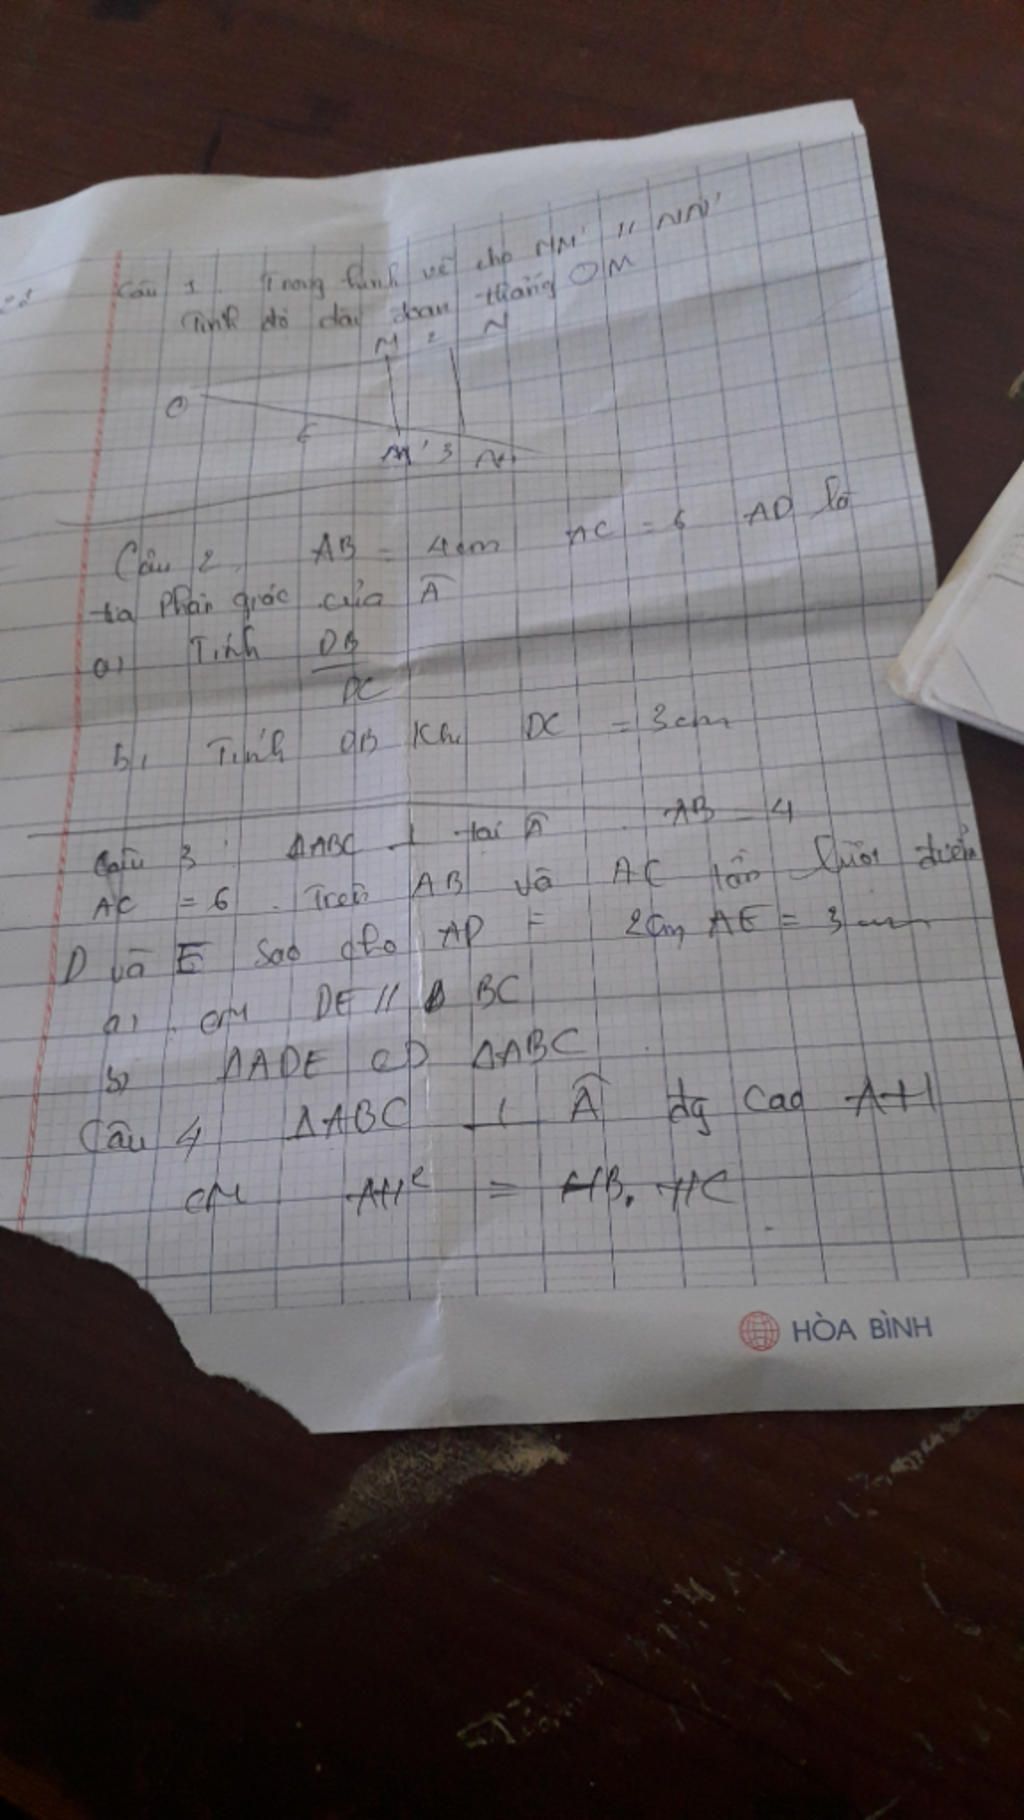 Câu 1. Trong hình vẽ cho MM' // NN'
Tính độ dài đoan thẳng OM
M 2 N
O
6
M' 3 N'
Câu 2. AB = 4cm AC = 6 AD là
tia phân giác của Â
a) Tính DB/DC
b, Tính DB Khi DC = 3cm
Câu 3: ΔABC ⊥ tại Â AB = 4
AC = 6. Trên AB và AC lần lượt điểm
D và E sao cho AD = 2cm AE = 3cm
a). CM DE // BC
b) ΔADE ∽ ΔABC
Câu 4 ΔABC ⊥ Â đg cao AH
CM AH² = HB. HC
HÒA BÌNH